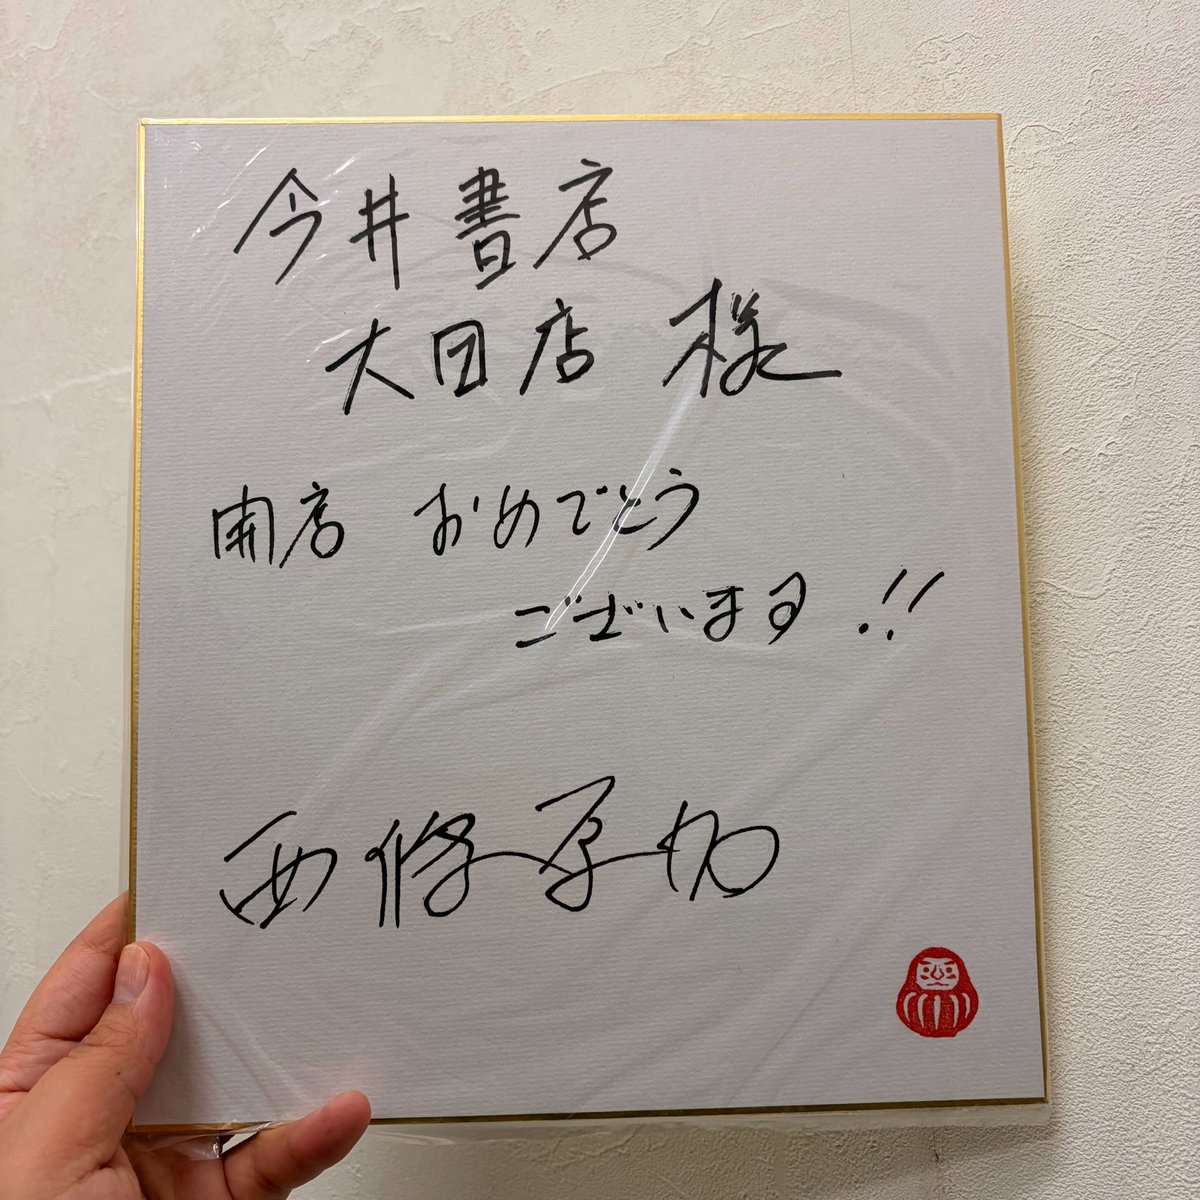 今井書店
大田店 様
開店 おめでとう
ございます!!